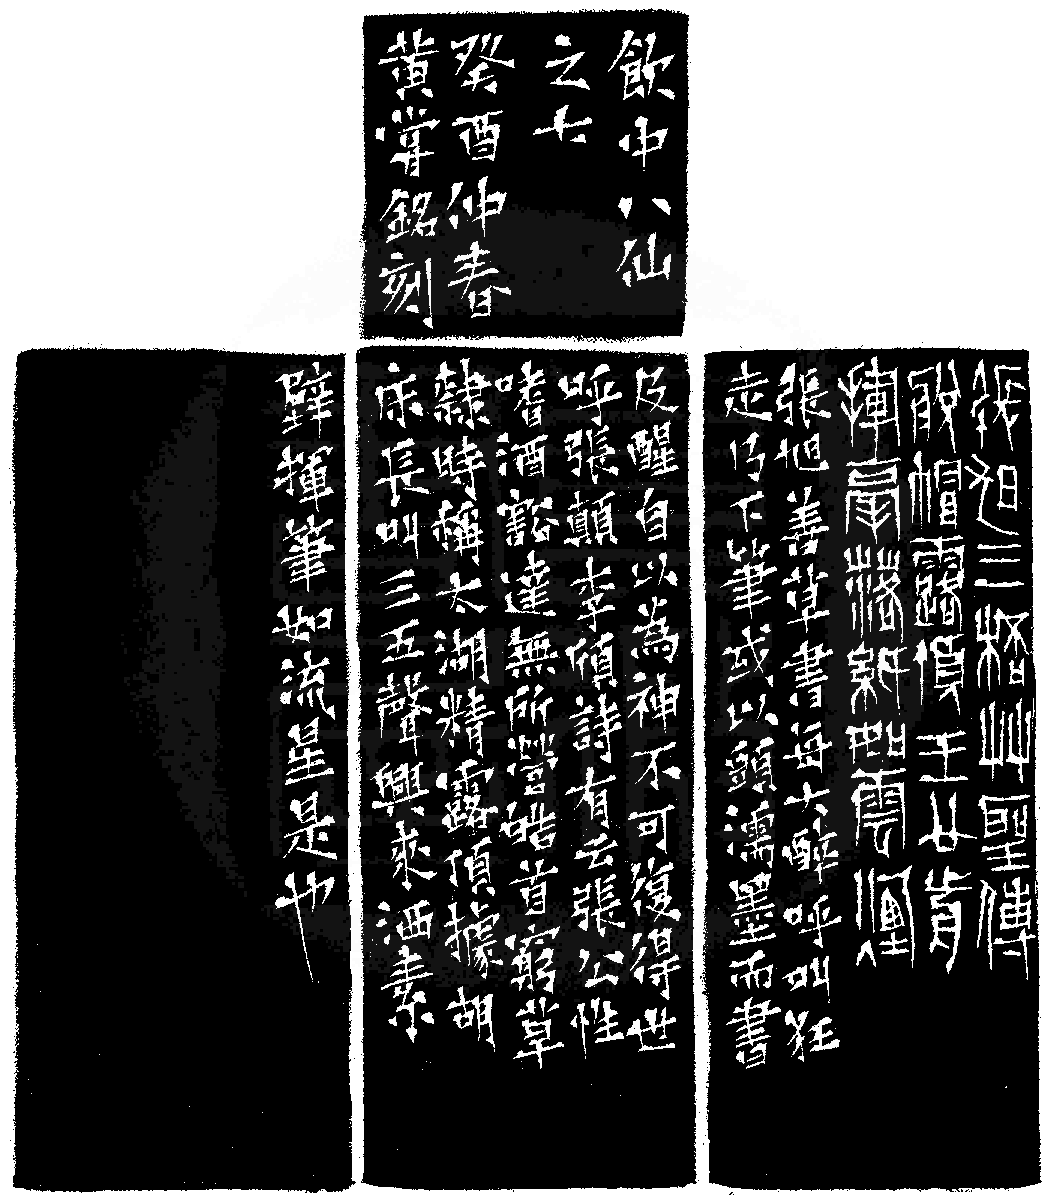 飲中八仙
之七
癸酉仲春
黃嘗銘刻
張旭三桮艸聖傳
脫帽露頂王公前
揮毫落紙如雲煙
張旭善草書每大醉呼叫狂
走乃下筆或以頭濡墨而書
及醒自以為神不可復得世
呼張顛李頎詩有云張公性
嗜酒豁達無所營皓首窮草
隸時稱太湖精露頂據胡
床長叫三五聲興來洒素
壁揮筆如流星是也